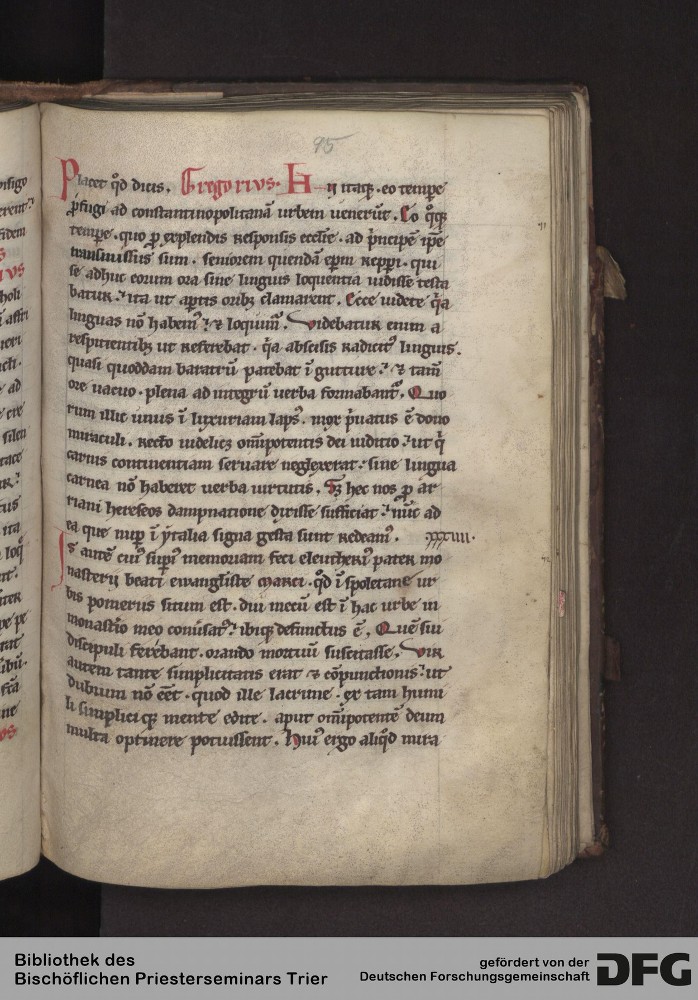 95
Placet qd dicis. Gregorivs. Hij itaq; eo tempe
pfugi ad constantinopolitanā urbem uenerūt. Eo qq;
tempe. quo p explendis responsis ecclie. ad pncipē ipē
transmissus sum. seniorem quendā epm repperi. qui
se adhuc eorum ora sine linguis loquentia uidisse testa
batur. ita ut aptis orib; clamarent. Ecce uidete qa
linguas nō habem⁹ ⁊ loquim̄. Videbatur enim a
respicientib; ut referebat. qa abscisis radicit⁹ linguis.
quasi quoddam baratrū patebat ī gutture. ⁊ tam̄
ore uacuo. plena ad integrū uerba formabant̄. Quo
rum illic unus ī luxuriam laps⁹. mox puatus ē dono
miraculi. recto uidelic; omīpotentis dei iuditio. ut q
carnis continentiam seruare neglexerat. sine lingua
carnea nō haberet uerba uirtutis. Sz hec nos p ar
riani hereseos dampnatione dixisse sufficiat. nūc ad
ea que nup ī ytalia signa gesta sunt redeam⁹. xxxiiii.
Is autē cui⁹ supi⁹ memoriam feci eleutheri⁹ pater mo
nasterij beati ewangliste marci. qd ī spoletane ur
bis pomerus situm est. diu mecū est ī hac urbe in
monastio meo conūsat⁹. ibiq; defunctus ē. Quē sui
discipuli ferebant. orando mortuū suscitasse. Vir
autem tante simplicitatis erat ⁊ cōpunctionis. ut
dubium nō eēt. quod ille lacrime. ex tam humi
li simplici q; mente edite. aput omīpotentē deum
multa optinere potuissent. Hui⁹ ergo aliqd mira
Bibliothek des
Bischöflichen Priesterseminars Trier
gefördert von der
Deutschen Forschungsgemeinschaft
DFG